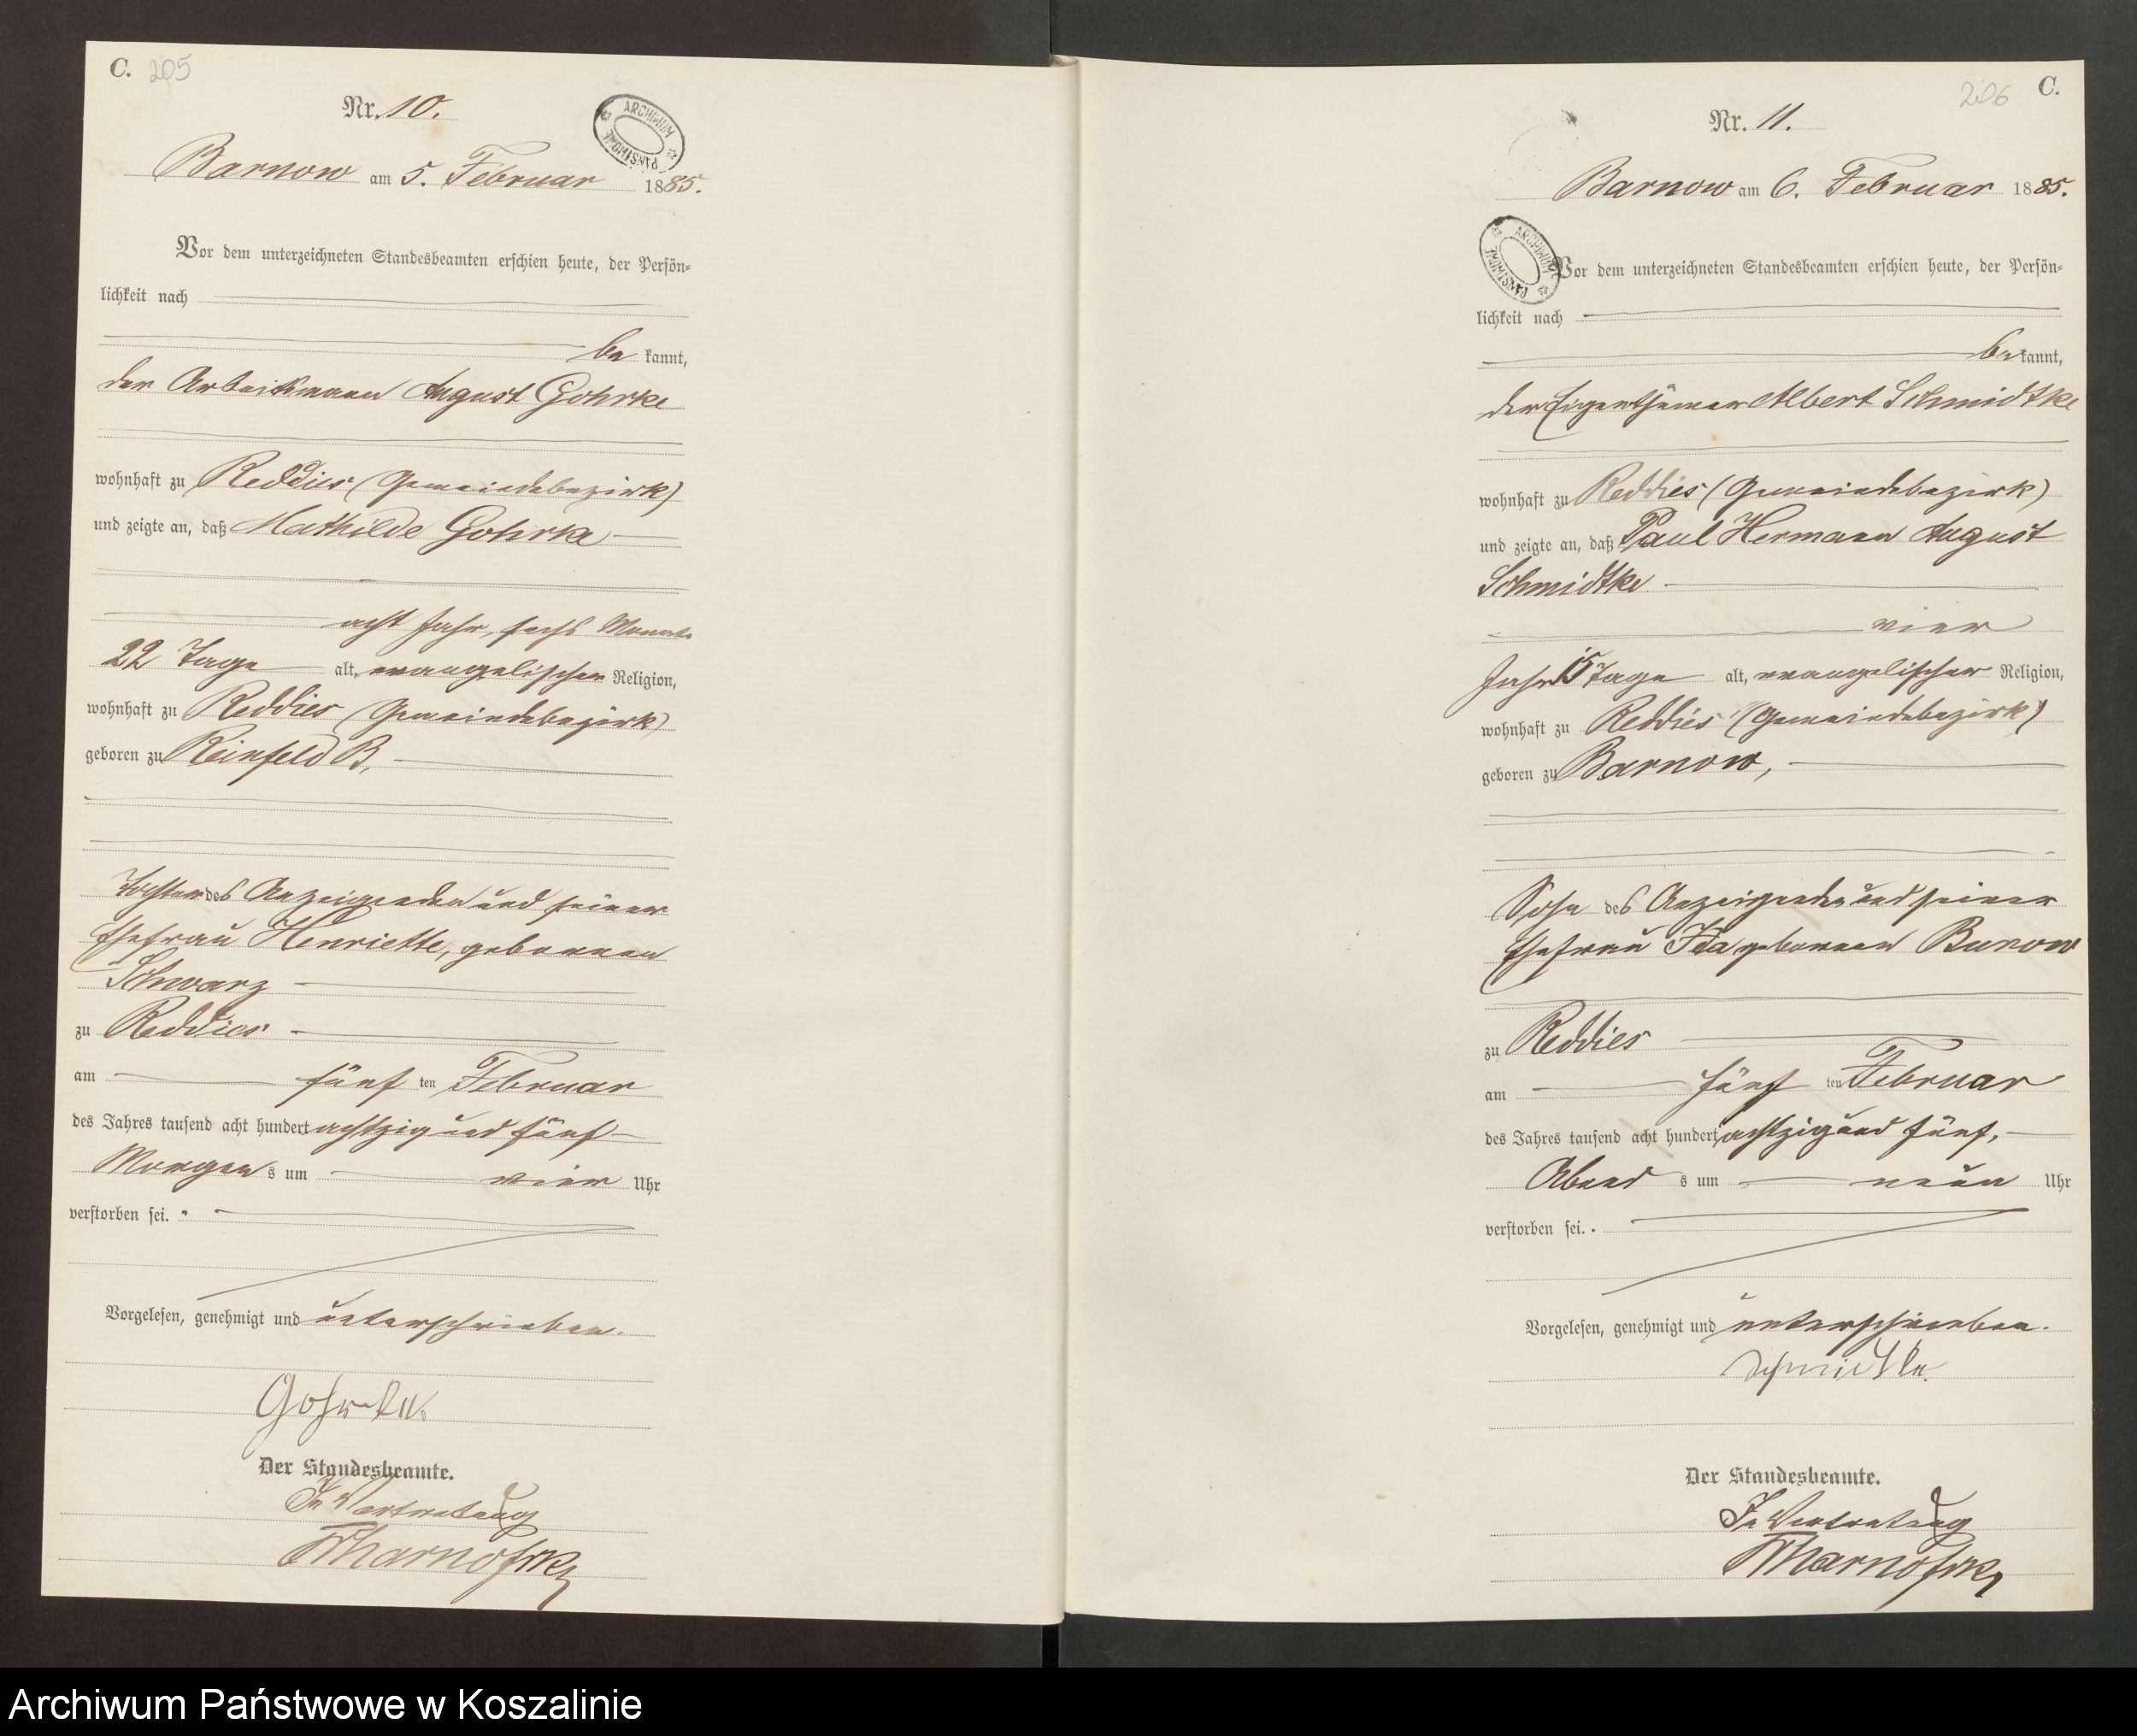 C. 205
Nr. 10.
ARCHIWUM PAŃSTWOWE
Barnow am 5. Februar 1885.
Vor dem unterzeichneten Standesbeamten erschien heute, der Persön-
lichkeit nach
be kannt,
der Arbeitsmann August Gohrke
wohnhaft zu Reddies (Gemeindebezirk)
und zeigte an, daß Mathilde Gohrke
acht Jahr, sechs Monate
22 Tage alt, evangelischer Religion,
wohnhaft zu Reddies (Gemeindebezirk)
geboren zu Reinfeld B.,
Tochter des Anzeigenden und seiner
Ehefrau Henriette, geborenen
Schwarz
zu Reddies
am fünf ten Februar
des Jahres tausend acht hundert achtzig und fünf
Morgen s um vier Uhr
verstorben sei.
Vorgelesen, genehmigt und unterschrieben.
Gohrke
Der Standesbeamte.
In Vertretung
206 C.
Nr. 11.
Barnow am 6. Februar 1885.
ARCHIWUM PAŃSTWOWE
Vor dem unterzeichneten Standesbeamten erschien heute, der Persön-
lichkeit nach
be kannt,
der Eigenthümer Albert Schmidtke
wohnhaft zu Reddies (Gemeindebezirk)
und zeigte an, daß Paul Hermann August
Schmidtke
vier
Jahr 15 Tage alt, evangelischer Religion,
wohnhaft zu Reddies (Gemeindebezirk)
geboren zu Barnow,
Sohn des Anzeigenden und seiner
Ehefrau Ida geborenen Bunow
zu Reddies
am fünf ten Februar
des Jahres tausend acht hundert achtzig und fünf,
Abend s um neun Uhr
verstorben sei.
Vorgelesen, genehmigt und unterschrieben.
Schmidtke.
Der Standesbeamte.
In Vertretung
Archiwum Państwowe w Koszalinie